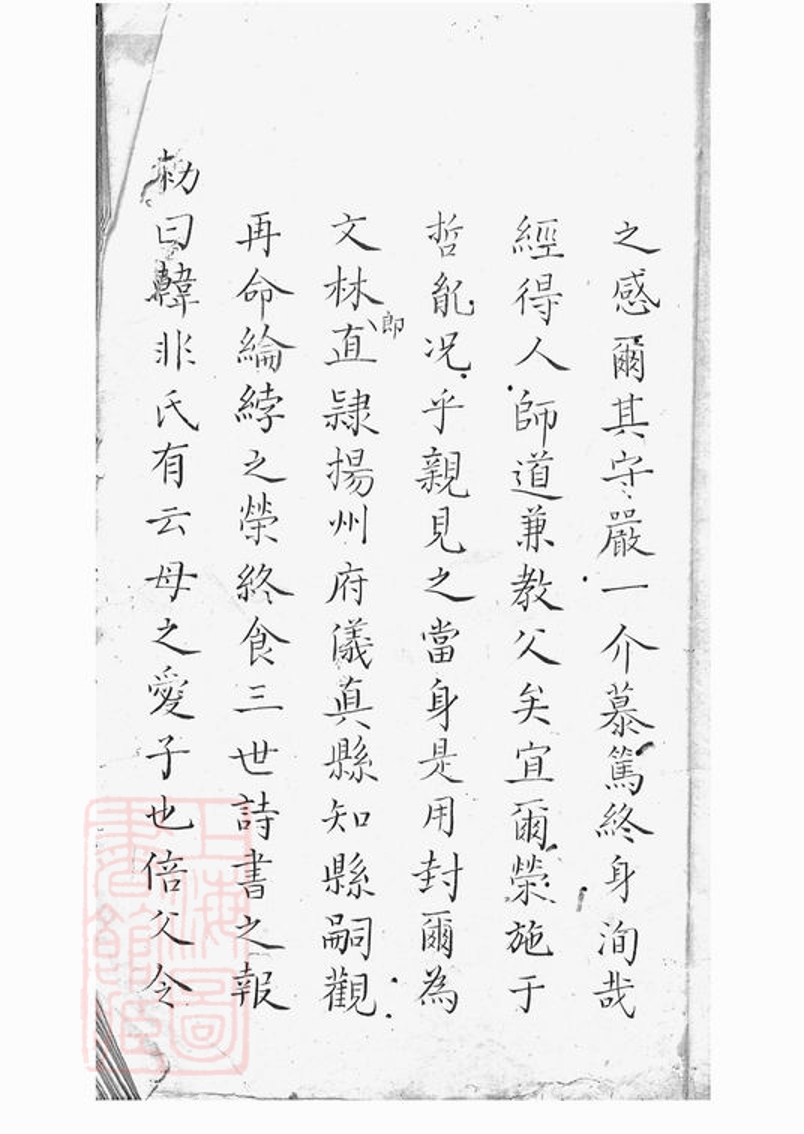 之感爾其守嚴一介慕篤終身洵哉
經得人師道兼教父矣宜爾榮施于
哲胤况乎親見之當身是用封爾為
文林郎直隷揚州府儀真縣知縣嗣觀
再命綸綍之榮終食三世詩書之報
勑曰韓非氏有云母之愛子也倍父令
上海圖
書館藏